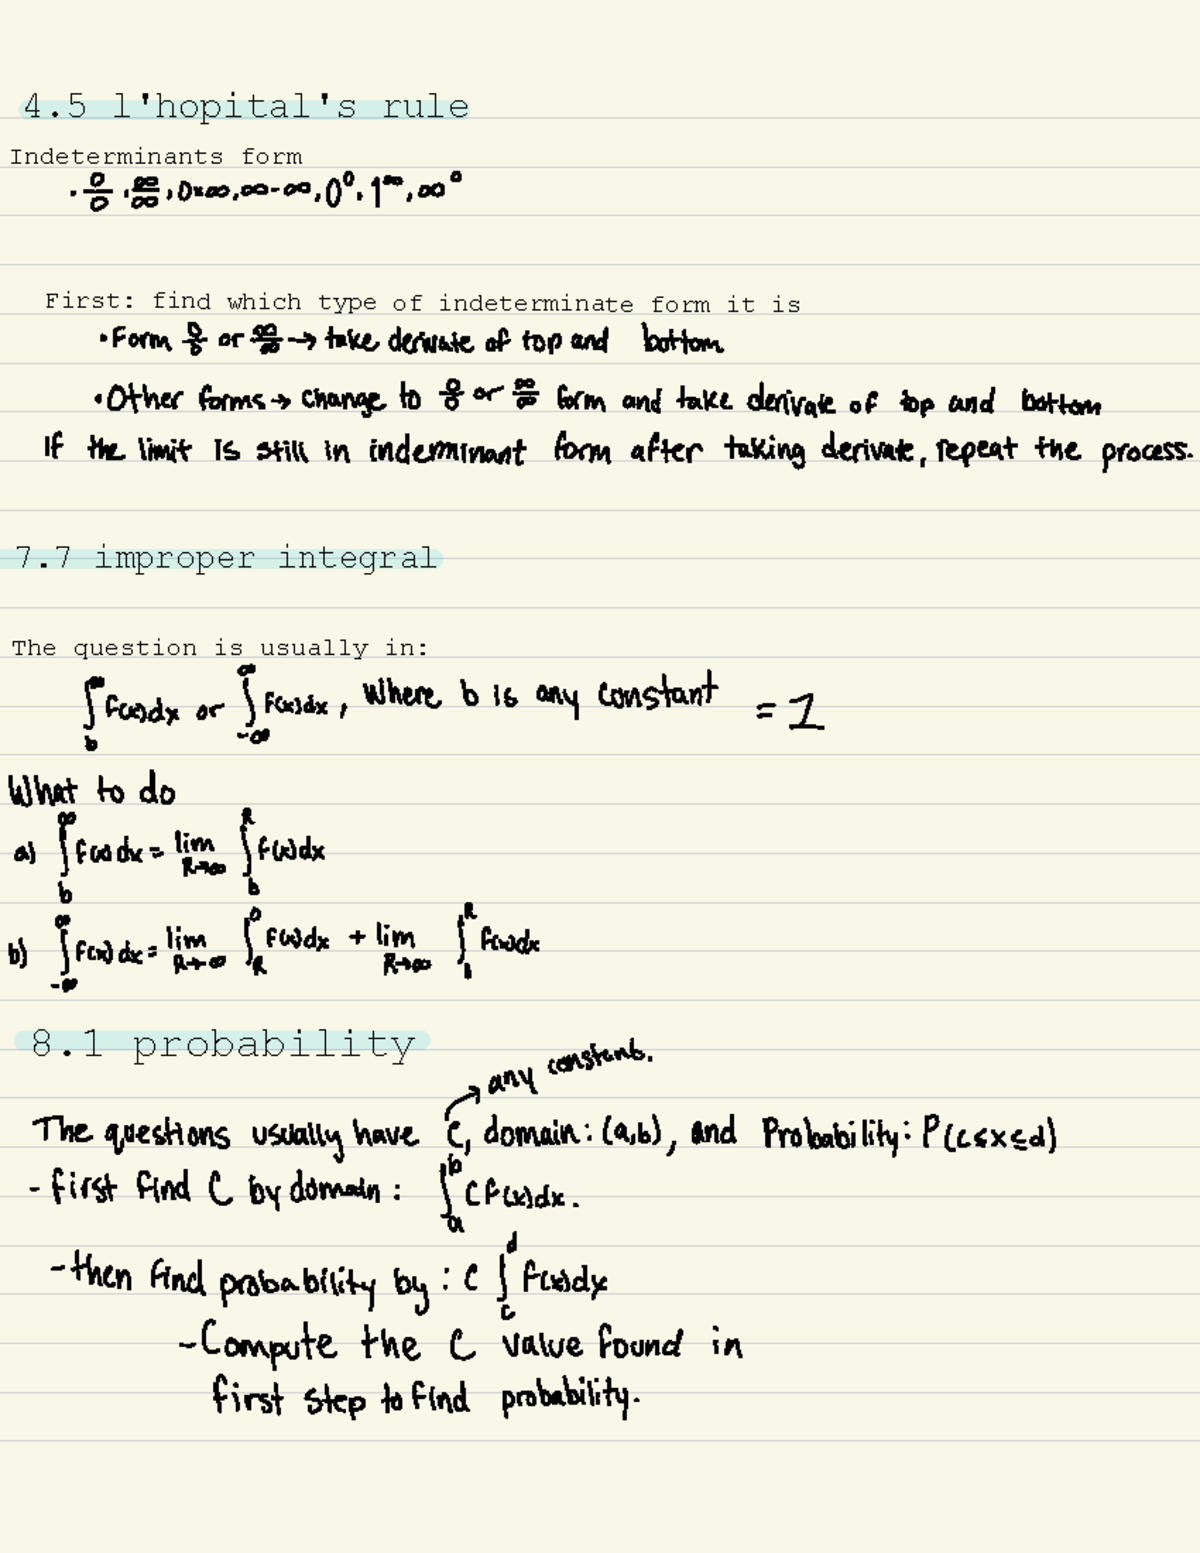 4.5 l'hopital's rule
Indeterminants form
· 0/0, ∞/∞, 0×∞, ∞-∞, 0⁰, 1^∞, ∞⁰
First: find which type of indeterminate form it is
· Form 0/0 or ∞/∞ → take derivate of top and bottom
· Other forms → change to 0/0 or ∞/∞ form and take derivate of top and bottom
If the limit is still in inderminant form after taking derivate, repeat the process.
7.7 improper integral
The question is usually in:
∫_b^∞ f(x)dx or ∫_-∞^∞ f(x)dx, where b is any constant = 1
What to do
a) ∫_b^∞ f(x)dx = lim R→∞ ∫_b^R f(x)dx
b) ∫_-∞^∞ f(x)dx = lim R→-∞ ∫_R^0 f(x)dx + lim R→∞ ∫^R f(x)dx
8.1 probability
any constant.
The questions usually have C, domain: (a,b), and Probability: P(c≤x≤d)
- first find C by domain: ∫_a^b Cf(x)dx.
- then find probability by: C ∫_c^d f(x)dx
- Compute the C value found in
first step to find probability.